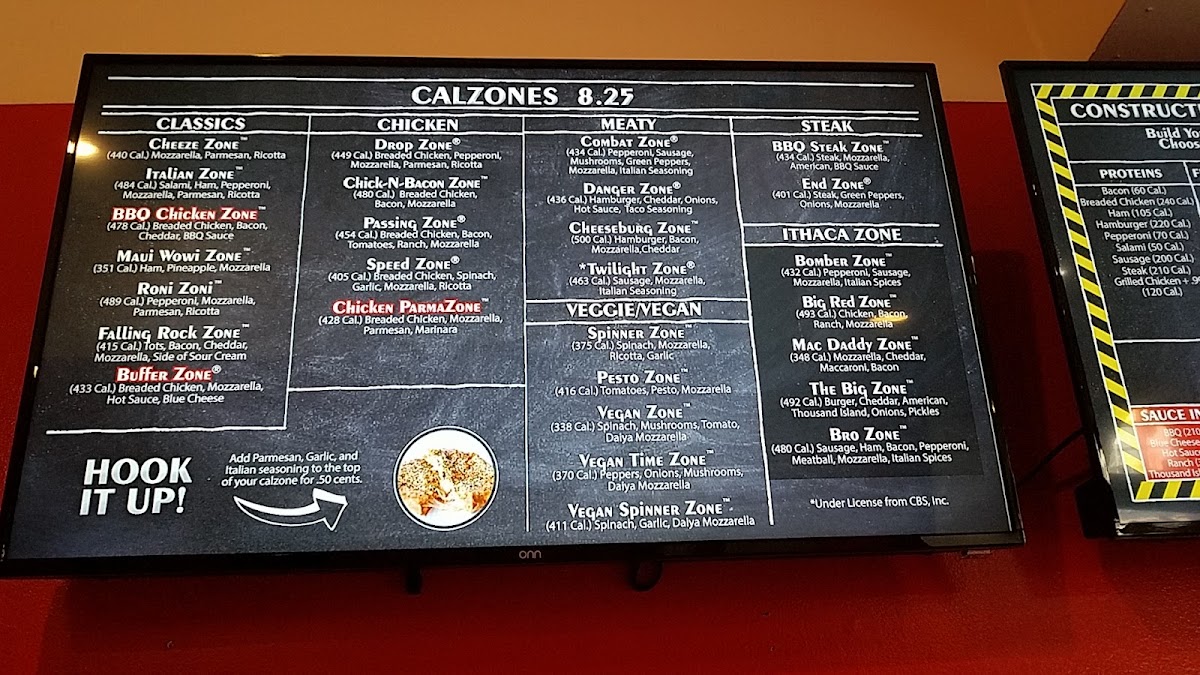 CALZONES 8.25
CLASSICS
Cheeze Zone™
(440 Cal.) Mozzarella, Parmesan, Ricotta
Italian Zone™
(484 Cal.) Salami, Ham, Pepperoni,
Mozzarella, Parmesan, Ricotta
BBQ Chicken Zone™
(478 Cal.) Breaded Chicken, Bacon,
Cheddar, BBQ Sauce
Maui Wowi Zone™
(351 Cal.) Ham, Pineapple, Mozzarella
Roni Zoni™
(489 Cal.) Pepperoni, Mozzarella,
Parmesan, Ricotta
Falling Rock Zone™
(415 Cal.) Tots, Bacon, Cheddar,
Mozzarella, Side of Sour Cream
Buffer Zone®
(433 Cal.) Breaded Chicken, Mozzarella,
Hot Sauce, Blue Cheese
CHICKEN
Drop Zone®
(449 Cal.) Breaded Chicken, Pepperoni,
Mozzarella, Parmesan, Ricotta
Chick-N-Bacon Zone™
(480 Cal.) Breaded Chicken,
Bacon, Mozzarella
Passing Zone®
(454 Cal.) Breaded Chicken, Bacon,
Tomatoes, Ranch, Mozzarella
Speed Zone®
(405 Cal.) Breaded Chicken, Spinach,
Garlic, Mozzarella, Ricotta
Chicken ParmaZone™
(428 Cal.) Breaded Chicken, Mozzarella,
Parmesan, Marinara
MEATY
Combat Zone®
(434 Cal.) Pepperoni, Sausage,
Mushrooms, Green Peppers,
Mozzarella, Italian Seasoning
Danger Zone®
(436 Cal.) Hamburger, Cheddar, Onions,
Hot Sauce, Taco Seasoning
Cheeseburg Zone™
(500 Cal.) Hamburger, Bacon,
Mozzarella,Cheddar
*Twilight Zone®
(463 Cal.) Sausage, Mozzarella,
Italian Seasoning
VEGGIE/VEGAN
Spinner Zone™
(375 Cal.) Spinach, Mozzarella,
Ricotta, Garlic
Pesto Zone™
(416 Cal.) Tomatoes, Pesto, Mozzarella
Vegan Zone™
(338 Cal.) Spinach, Mushrooms, Tomato,
Daiya Mozzarella
Vegan Time Zone™
(370 Cal.) Peppers, Onions, Mushrooms,
Daiya Mozzarella
Vegan Spinner Zone™
(411 Cal.) Spinach, Garlic, Daiya Mozzarella
STEAK
BBQ Steak Zone™
(434 Cal.) Steak, Mozzarella,
American, BBQ Sauce
End Zone®
(401 Cal.) Steak, Green Peppers,
Onions, Mozzarella
ITHACA ZONE
Bomber Zone™
(432 Cal.) Pepperoni, Sausage,
Mozzarella, Italian Spices
Big Red Zone™
(493 Cal.) Chicken, Bacon,
Ranch, Mozzarella
Mac Daddy Zone™
(348 Cal.) Mozzarella, Cheddar,
Maccaroni, Bacon
The Big Zone™
(492 Cal.) Burger, Cheddar, American,
Thousand Island, Onions, Pickles
Bro Zone™
(480 Cal.) Sausage, Ham, Bacon, Pepperoni,
Meatball, Mozzarella, Italian Spices
*Under License from CBS, Inc.
HOOK
IT UP!
Add Parmesan, Garlic, and
Italian seasoning to the top
of your calzone for .50 cents.
onn
CONSTRUCT
Build Yo
Choos
PROTEINS
Bacon (60 Cal.)
Breaded Chicken (240 Cal.)
Ham (105 Cal.)
Hamburger (220 Cal.)
Pepperoni (70 Cal.)
Salami (50 Cal.)
Sausage (200 Cal.)
Steak (210 Cal.)
Grilled Chicken + .9
(120 Cal.)
SAUCE IN
BBQ (210
Blue Cheese
Hot Sauc
Ranch
Thousand Is